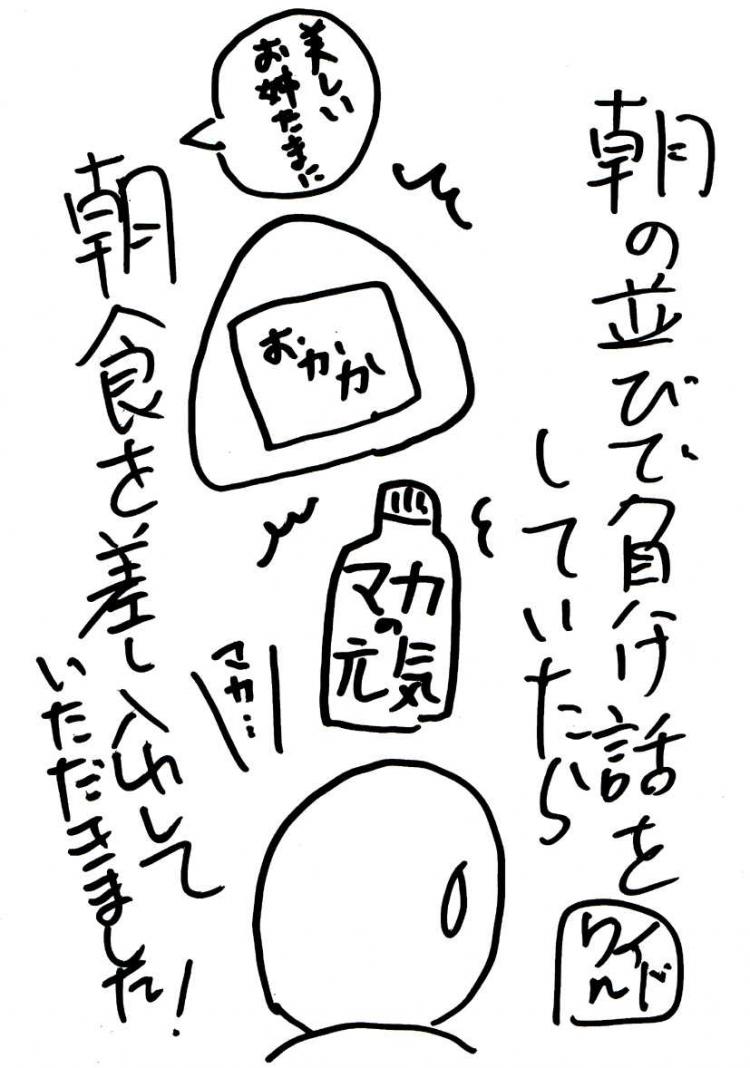 朝の並びで負け話を
していたら
ワイルド
美しい
お姉たまに
おかか
マカ
の
元気
マカ…
朝食を差し入れして
いただきました!